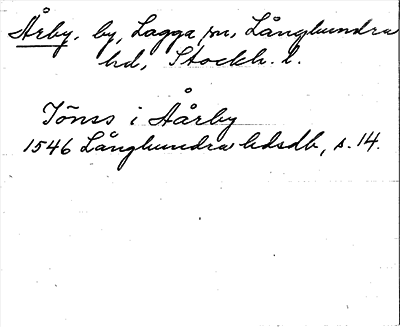 Årby, by, Lagga sn, Långhundra
hd, Stockh. l.
Jönss i Åårby
1546 Långhundra hdsdb, s. 14.